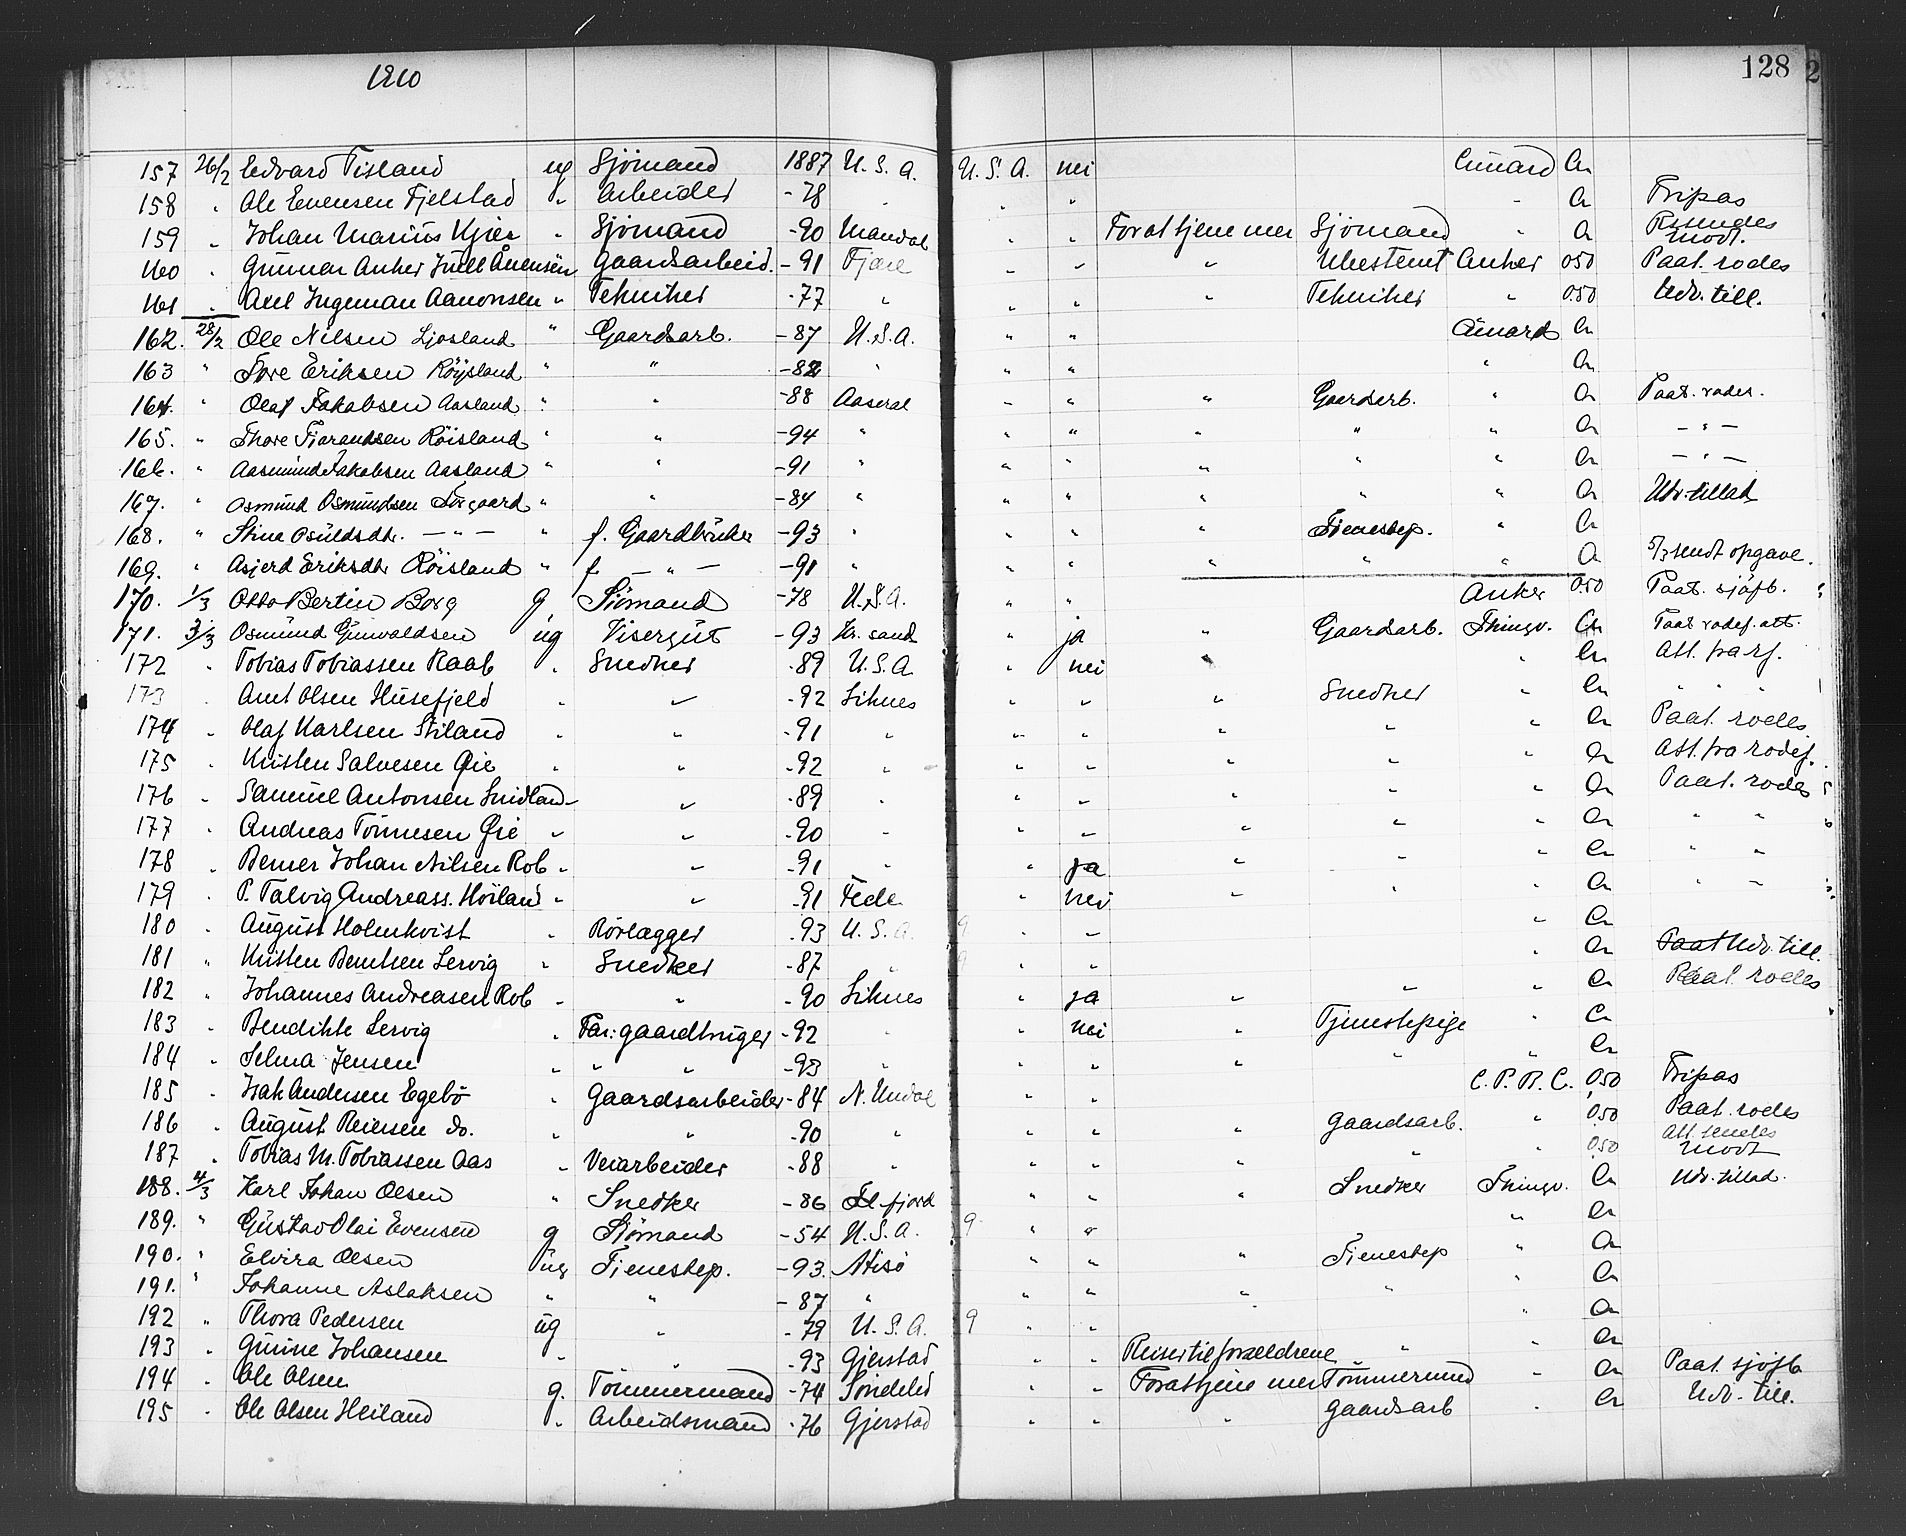 1910
128
157 26/2 Edvard Tisland ug Sjömand 1887 U. S. A. U. S. A. nei Cunard Cr
158 " Ole Evensen Fjelstad " Arbeider -78 " " " " Cr Fripas
159 " Johan Marius Kjær " Sjömand -90 Mandal " " For at tjene mer Sjömand " Cr R. sendes modt.
160 " Gunnar Anker Juell Ånensen Gaardsarbeid. -91 Fjære " " " Ubestemt Anker 0.50 Paat. rodes
161 " Axel Ingeman Aanonsen " Tekniker -77 " " " " Tekniker " 0.50 Udv. till.
162. 28/2 Ole Nilsen Ljosland " Gaardsarb. -87 U.S.A. " " Cunard Cr
163 " Tore Eriksen Röysland " " -82 " " " " Cr
164. " Olaf Jakobsen Aasland " " -88 Aaseral " " " Gaardarb. " Cr Paat. rodes.
165. " Thore Tjorandsen Röisland " " -94 " " " " " " Cr - " -
166. " Aasmund Jakobsen Aasland " " -91 " " " " " " Cr - " -
167. " Osmund Osmundsen Torgaard " " -84 " " " " " " Cr Udv. tillad
168. " Stina Osuldsdtr. - " - " f. Gaardbruker -93 " " " " Tienestep. " Cr
169. " Asjerd Eriksdtr Röisland " f - " - -91 " " " " " " Cr 5/3 sendt opgave.
170. 1/3 Otto Bertin Borg g Siömand -78 U.S.A. " " Anker 0.50 Paat. sjöfb.
171. 3/3 Osmund Gunvaldsen ug Visergut -93 Kr. sand " ja " Gaardsarb. Thingv. Cr Paat rodef. att.
172 " Tobias Tobiassen Raab " Snedker -89 U.S.A " nei " " Cr Att. fra rf.
173 " Amt Olsen Husefjeld " " -92 Siknes " " " Snedker " Cr " " "
174 " Olaf Karlsen Stiland " " -91 " " " " " " Cr Paat. rodes
175 " Kristen Salvesen Øie " " -92 " " " " " Cr Att. fra rodef.
176 " Samuel Antonsen Snidland " -89 " " " " " " Cr Paat. rodes
177 " Andreas Tönnesen Øie " " -90 " " " " " " Cr " "
178 " Berner Johan Nilsen Rob " " -91 " " ja " " " Cr " "
179 " P. Talvig Andreass. Hoiland " " -91 Fede " nei " " " Cr " "
180 " August Holmkvist " Rörlægger -93 U. S. A. 9 " " " Cr
181 " Kristen Berntsen Servig " Snedker -87 " " " " Cr Paat Udv. till.
182 " Johannes Andreasen Rob " " -90 Siknes " ja " " " Cr Paat. rodes
183 " Bendikte Servig " Far: gaardbruger -92 " " nei " Tjenestepige " Cr
184 " Selma Jensen " " " " -93 " " " " " " Cr
185 " Isak Andersen Egebö " Gaardsarbeider -84 N. Undal " " C. P. R. C. 0.50 Fripas
186 " August Reiersen do. " " -90 " " " " Gaardsarb. " 0.50 Paat. rodes
187 " Tobias M. Tobiassen Aas " Veiarbeider -88 " " " " " " 0.50 Att. sendes modt
188. 4/3 Karl Johan Olsen " Snedker -86 Fl. fjord " " " Snedker Thingv. Cr Udv. tillad.
189. " Gustav Olai Evensen g Siömand -54 U.S.A. 9 " " " Cr
190. " Elvira Olsen ug Tienestep. -93. " " " Tienestep " Cr
191. " Johanne Aslaksen " " -87 " " " " " " Cr
192 " Thora Pedersen ug " -79 U. S. A. 9 " " " Cr
193 " Gunne Johansen " " -93 Gjerstad " " Reiser til forældrene " " Cr
194 " Ole Olsen g. Tömmermand -74 Söndeled " " For at tjene mer Tömmermand " Cr Paat. sjöfb
195 " Ole Olsen Heiland " Arbeidsmand -76 Gjerstad " " " Gaardsarb " Cr Udv. till.